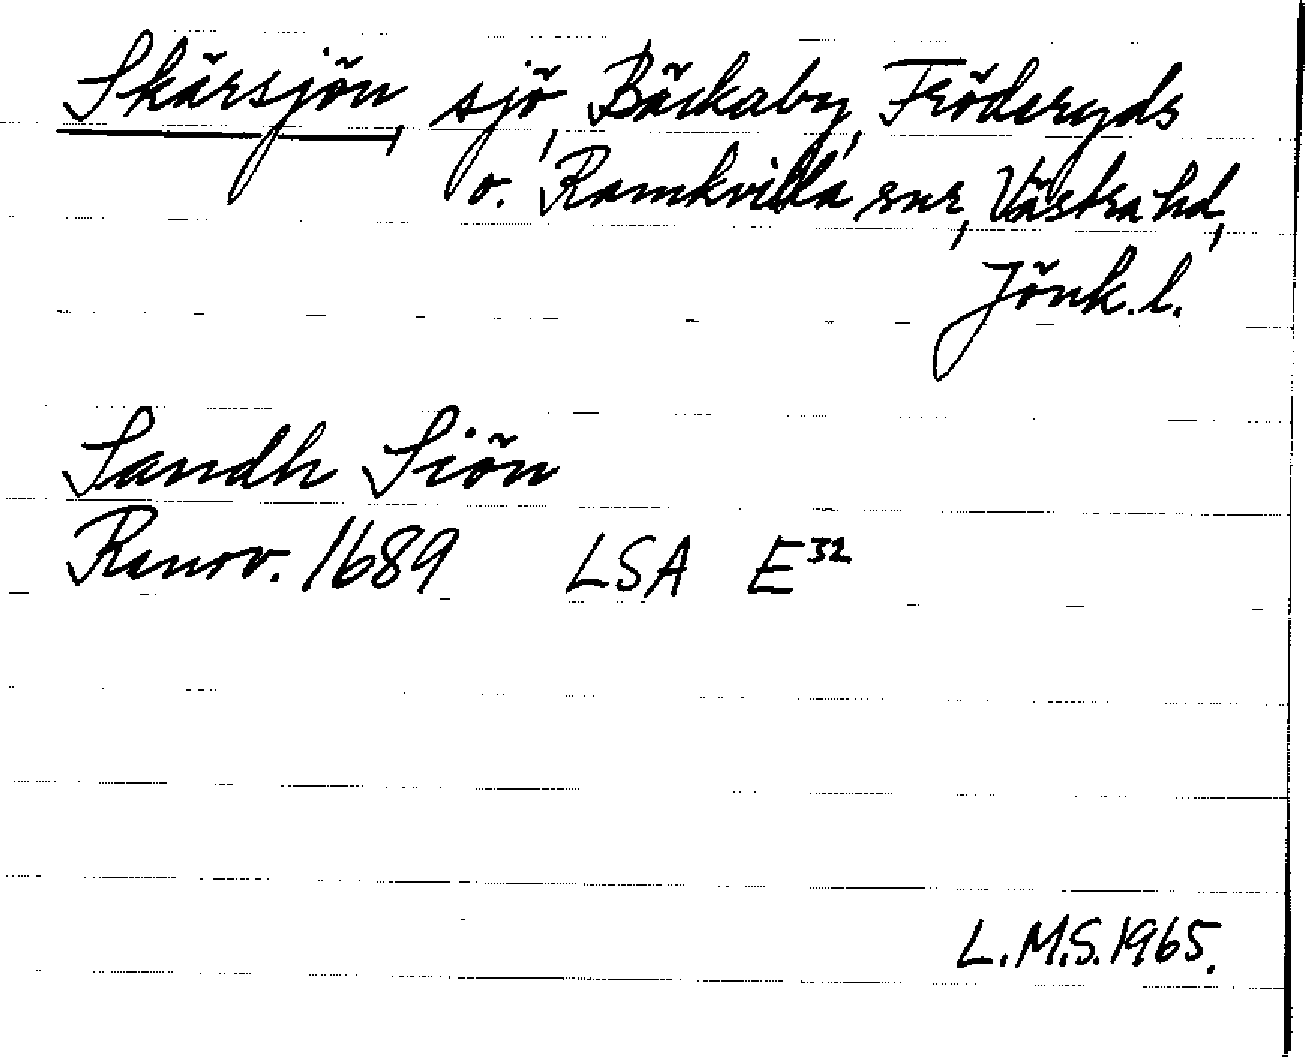 Skärsjön sjö, Bäckaby, Fröderyds
o. Ramkvilla snr, Västra hd,
Jönk. l.
Sandh Siön
Ranov. 1689 LSA E³²
L.M.S. 1965.